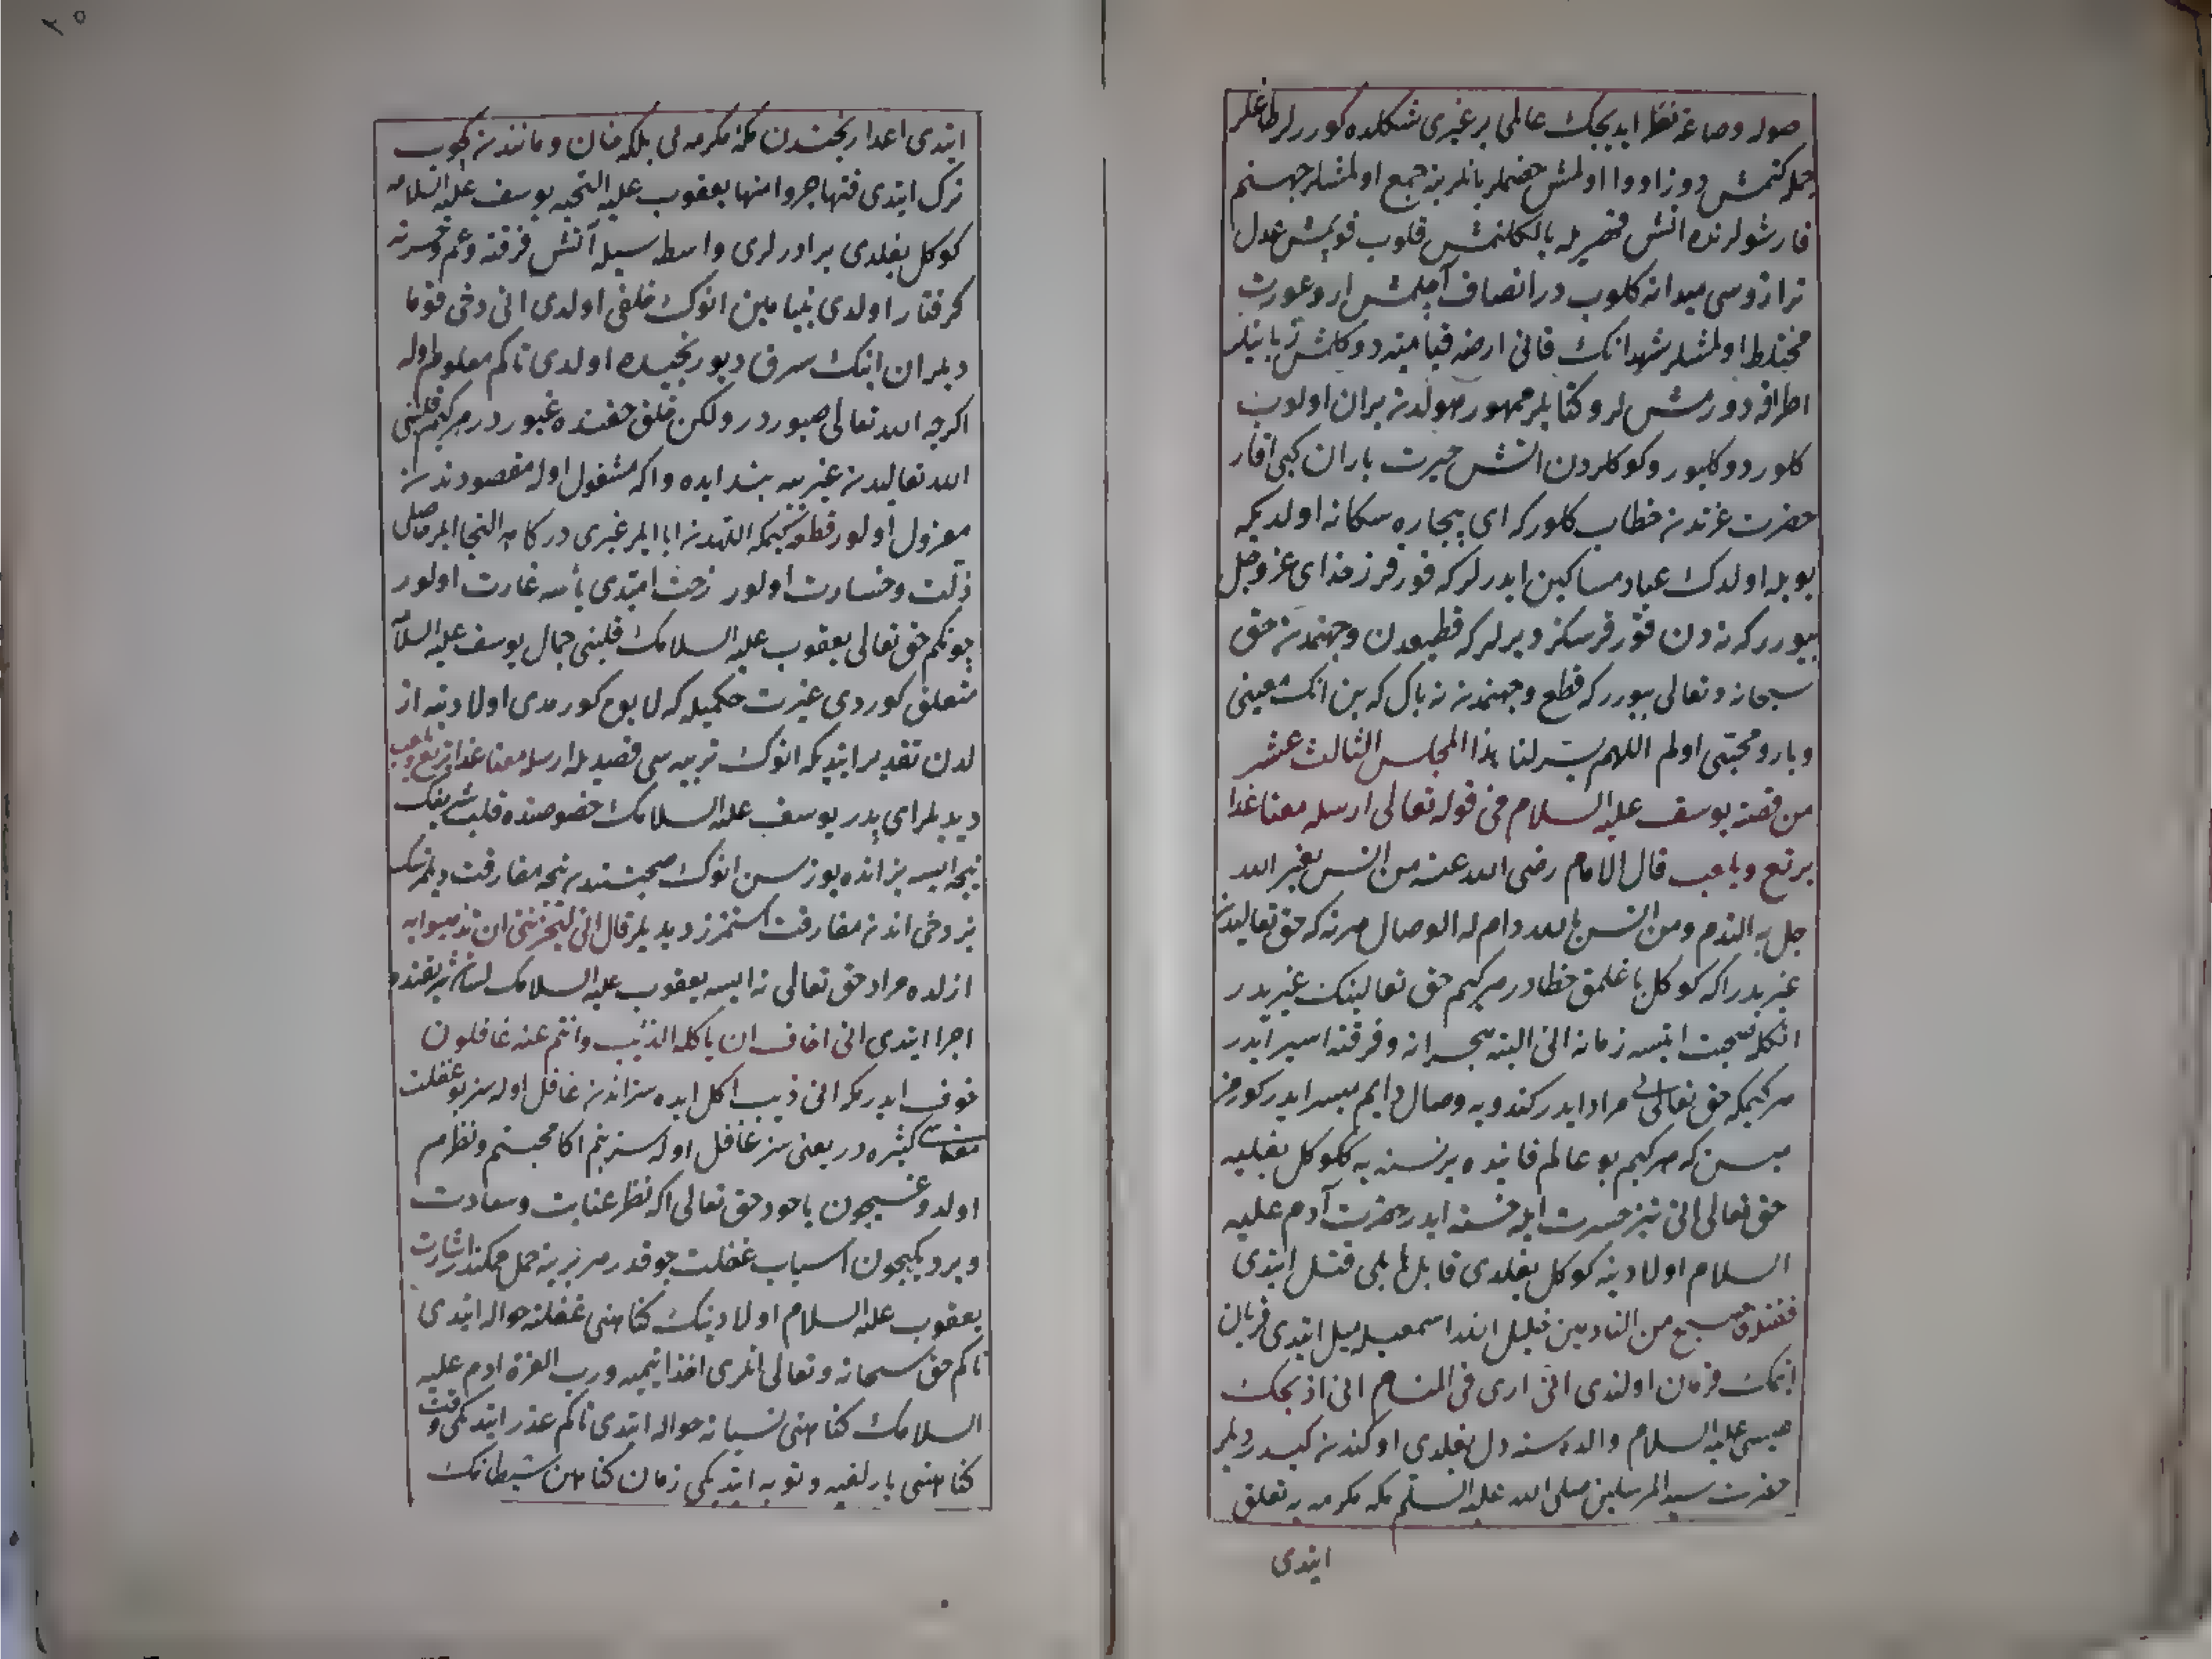 صوله وصاغه نظر ایدیجك عالمی بر غیری شكلده كوررلر طاغلر
جمله كتمش دوز اووا اولمش خصملر بانلرینه جمع اولمشلر جهنم
قارشولرنده آتش قهریله یالكلنمش قلوب قویمش عدل
ترازوسی میدانه كلوب در انصاف آچلمش ار و عورت
مختلط اولمشلر شهدانك قانی ارض قیامته دوكلمش زبانیلر
اطرافه دورمشلر و كتابلر ممهور صولدن بران اولوب
كلور دوكلیور و كوكلردن آتش حیرت باران كبی اقار
حضرت عزتدن خطاب كلور كه ای بیچاره سكا نه اولدیكه
بویله اولدك عباد مساكین ایدرلر كه قورقرز خدای عز وجل
بیورر كه نه دن قورقرسكز دیرلر كه قطیعه دن و جهنمدن حق
سبحانه وتعالی بیورر كه قطع وجهنمدن نه باك كه بن انك معینی
و یار و محبتی اولم اللهم یسر لنا هذا المجلس الثالث عشر
من قصه یوسف علیه السلام فی قوله تعالی ارسله معنا غدا
یرتع ویلعب قال الامام رضی الله عنه من انس بغیر الله
جل به الندم ومن انس بالله دام له الوصال هر نه كه حق تعالیدن
غیریدر اكه كوكل باغلمق خطادر هر كیم حق تعالینك غیریدر
انكله صحبت ایتسه زمانه انی البته هجرانه وفرقته اسیر ایدر
هر كیمكه حق تعالی یی مراد ایدر كندویه وصال دایم میسر ایدر كورمز
میسن كه هر كیم بو عالم فانیده بر نسنه یه كوكل بغلیه
حق تعالی انی تیز حسرت ایله خسته ایدر حضرت آدم علیه
السلام اولادینه كوكل بغلدی قابیل هابیلی قتل ایتدی
فقتله فاصبح من النادمین خلیل الله اسمعیله میل ایتدی قربان
ایتمك فرمان اولندی انی اری فی المنام انی اذبحك
عیسی علیه السلام والده سنه دل بغلدی اوكندن كیدردیلر
حضرت سید المرسلین صلی الله علیه السلم مكه مكرمه یه تعلق
ایتدی
ایتدی اعدا رنجندن مكه مكرمه لی بلكه خان و ماندن كچوب
ترك ایتدی فتهاجروا منها یعقوب علیه التحیه یوسف علیه السلامه
كوكل بغلدی برادرلری واسطه سیله آتش فرقته وغم وحسرته
كرفتار اولدی بنیامین انوك خلفی اولدی انی دخی قوما
دیلر ان ابنك سرق دیو رنجیده اولدی تاكم معلوم اوله
اكرچه الله تعالی صبوردر ولكن خلق حقنده غیوردر هر كیم قلبنی
الله تعالیدن غیریه بند ایده و اكه مشغول اوله مقصودندن
معزول اولور قطعه كیمكه اللهدن ابا ایلر غیری دركاهه التجا ایلر حاصلی
ذلت وخسارت اولور رخت امیدی یأسه غارت اولور
چونكم حق تعالی یعقوب علیه السلامك قلبنی جمال یوسف علیه السلامه
متعلق كوردی غیرت حكمیله كه لایق كورمدی اولادینه از
لدن تقدیر ایتدیكه انوك تربیه سی قصدیله ارسله معنا غدا یرتع ویلعب
دیدیلر ای پدر یوسف علیه السلامك خصوصنده قلب شریفك
نیجه ایسه بز انده یوز سن انوك صحبتندن نیجه مفارقت دیلمزسك
بز دخی اندن مفارقت استمزز دیدیلر قال انی لیحزننی ان تذهبوا به
ازلده مراد حق تعالی نه ایسه یعقوب علیه السلامك لسان شریفنده
اجرا ایتدی انی اخاف ان یاكله الذئب وانتم عنه غافلون
خوف ایدرم كه انی ذیب اكل ایده سز اندن غافل اوله سز بو غفلت
كثیره در یعنی سز غافل اوله سز بنم اكا محبتم ونظرم
اولدوغیچون یاخود حق تعالی اكه نظر عنایت وسعادت
ویردیكیچون اسباب غفلت چوقدر هر بربنه حمل ممكندر اشارت
یعقوب علیه السلام اولادینك كناهنی غفلته حواله ایتدی
تاكم حق سبحانه وتعالی انلری اخذ ایتمیه ورب العزة ادم علیه
السلامك كناهنی نسیانه حواله ایتدی تاكم عذر ایتدیكی وقت
كناهنی یارلغیه وتوبه ایتدیكی زمان كناهن شیطانك